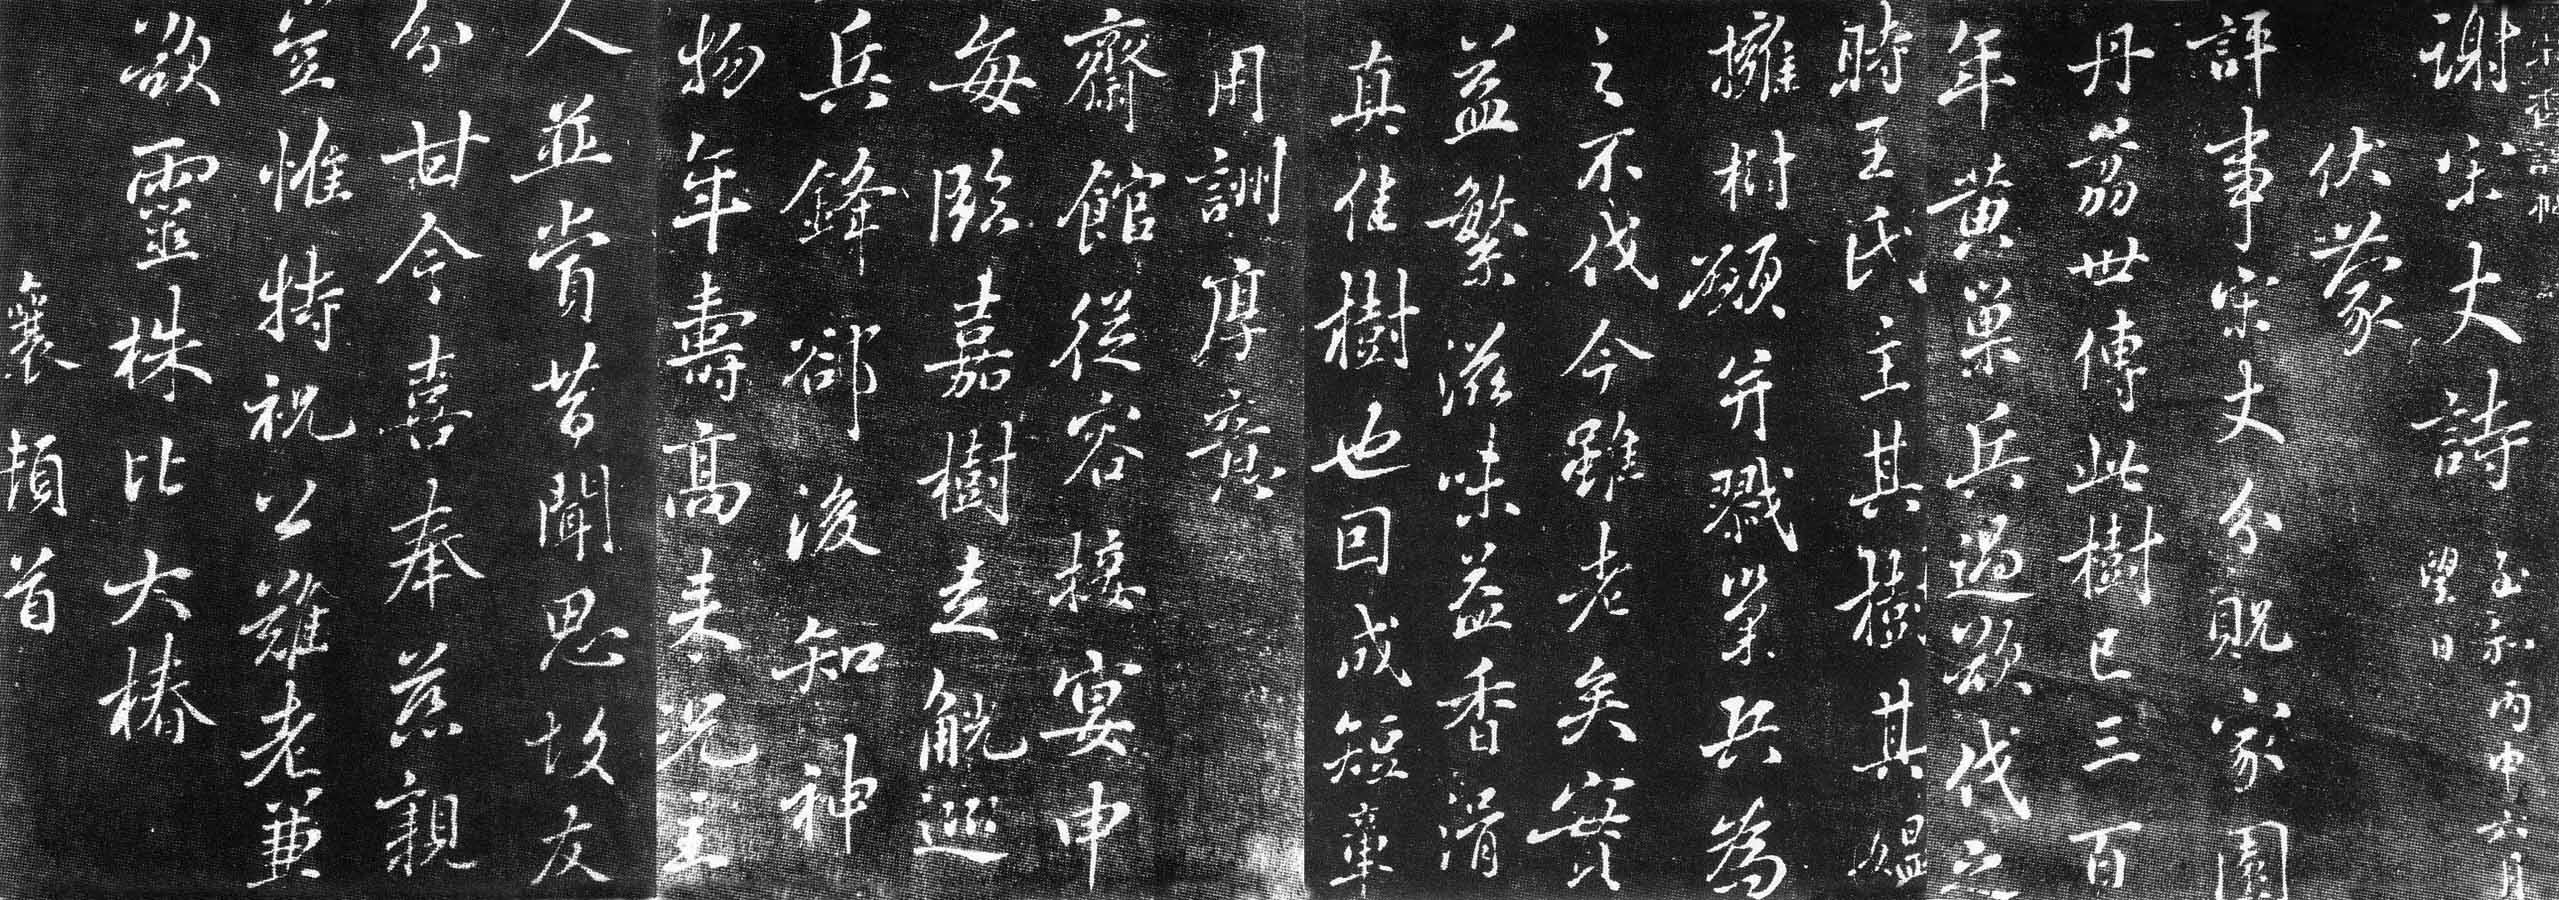 謝宋丈詩 至和丙申六月
望日
伏蒙
評事宋丈分貺家園
丹荔世傳此樹已三百
年黃巢兵過欲伐之
時王氏主其樹其媼
擁樹願并戮巢兵為
之不伐今雖老矣實
益繁滋味益香滑
真佳樹也因成短章
用詶厚意
齋館從容接宴申
每臨嘉樹走觥巡
兵鋒郤後知神
物年壽高來況主
人並賞昔聞思故友
分甘今喜奉慈親
豈惟特祝公難老兼
欲靈株比大椿
襄頓首